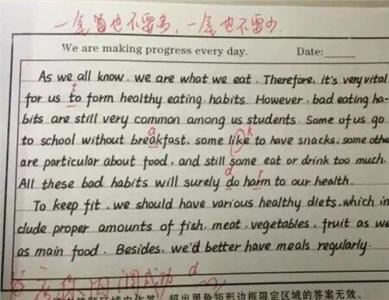 一笔画也不要多，一笔也不要少
We are making progress every day. Date:
As we all know, we are what we eat. Therefore, it's very vital
t
for us to form healthy eating habits. However, bad eating ha-
bits are still very common among us students. Some of us go
a k
to school without breakfast, some like to have snacks, some othe
are particular about food, and still some eat or drink too much.
d r
All these bad habits will surely do harm to our health.
To keep fit, we should have various healthy diets, which in
clude proper amounts of fish, meat, vegetables, fruit as we
as main food. Besides, we'd better have meals regularly.
d
超出黑色矩形边框限定区域的答案无效。